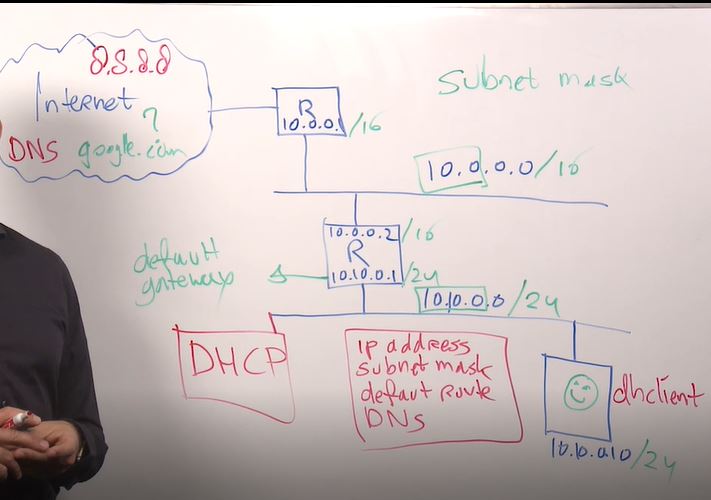 8.8.8.8
Internet
?
DNS google.com
R
10.0.0.1/16
Subnet mask
10.0.0.0/16
10.0.0.2/16
R
10.10.0.1/24
default
gateways
10.10.0.0/24
DHCP
ip address
subnet mask
defaut Route
DNS
dhclient
10.10.0.10/24